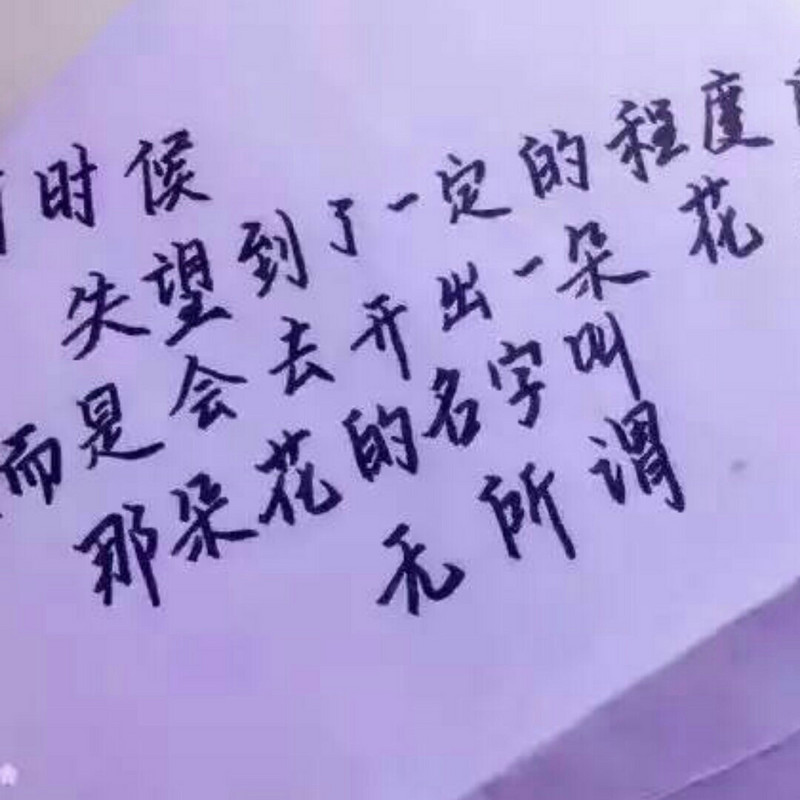 时候
失望到了一定的程度
而是会去开出一朵花
那朵花的名字叫
无所谓